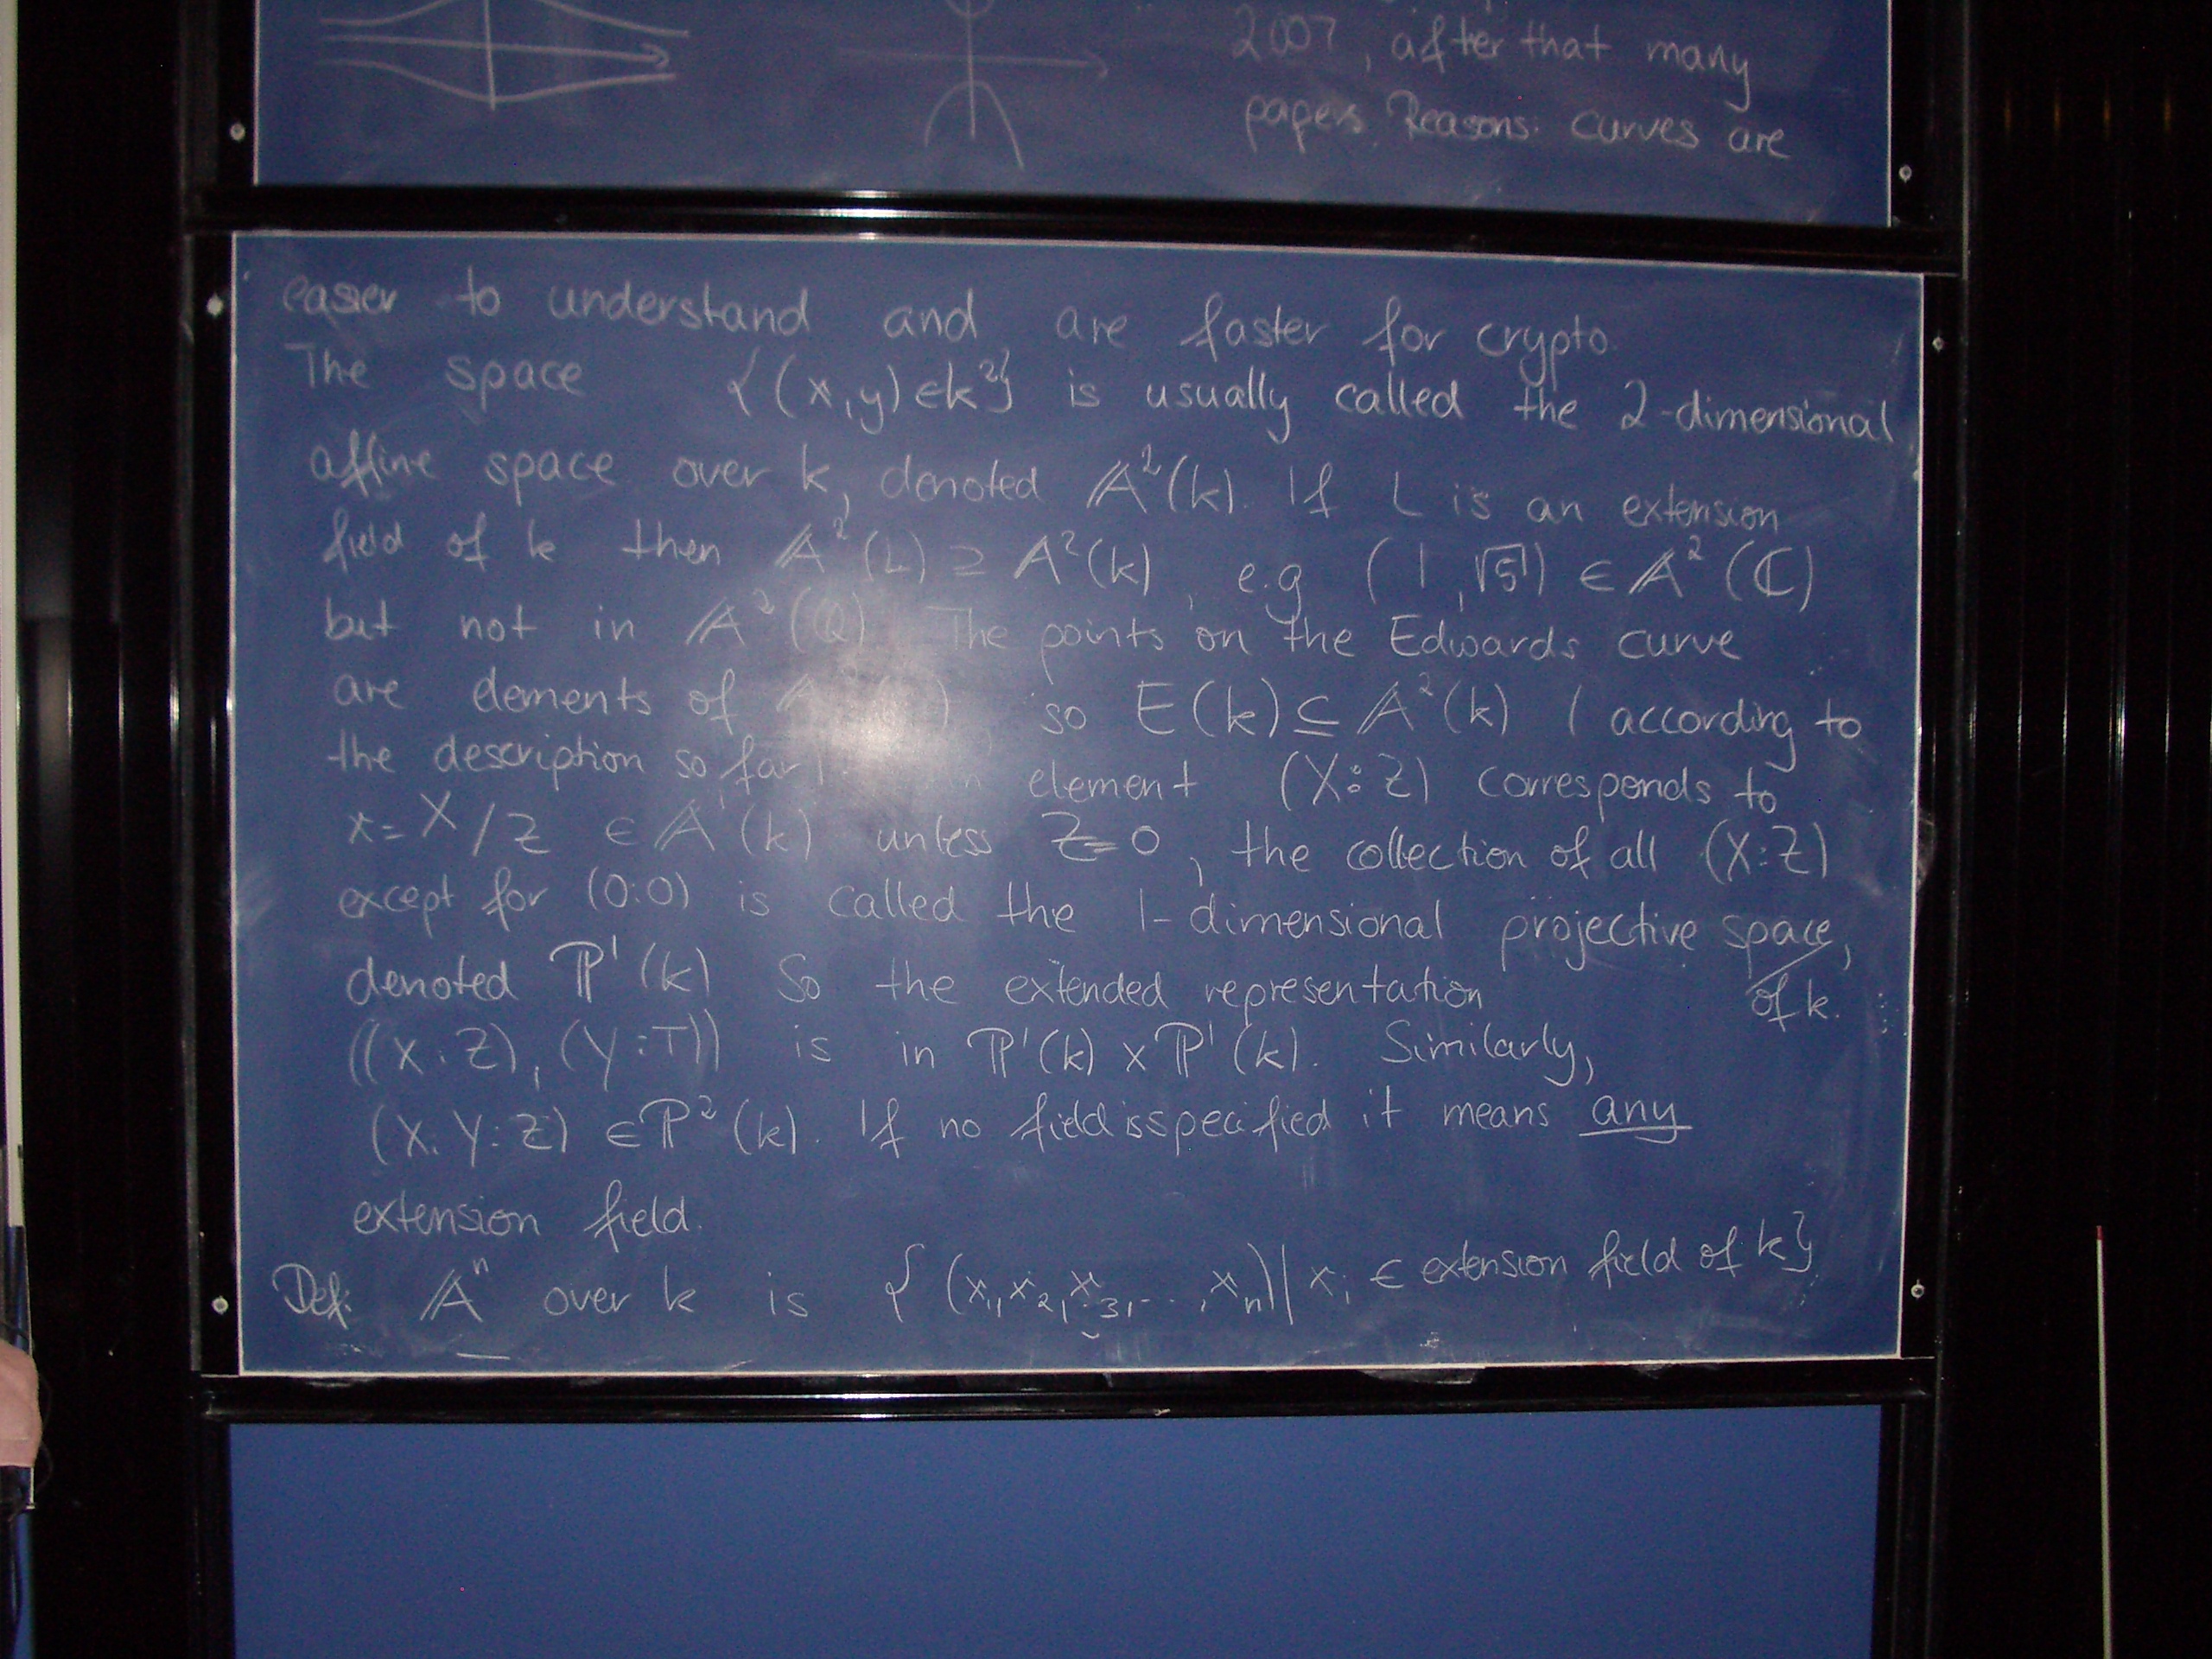 2007, after that many
papers. Reasons: curves are
easier to understand and are faster for crypto.
The space {(x,y)∈k²} is usually called the 2-dimensional
affine space over k, denoted 𝔸²(k). If L is an extension
field of k then 𝔸²(L) ⊇ 𝔸²(k), e.g (1,√5) ∈ 𝔸²(ℂ)
but not in 𝔸²(ℚ) The points on the Edwards curve
are elements of so E(k) ⊆ 𝔸²(k) (according to
the description so far) element (X:Z) corresponds to
x=X/Z ∈ 𝔸¹(k) unless Z=0, the collection of all (X:Z)
except for (0:0) is called the 1-dimensional projective space,
of k.
denoted ℙ¹(k) So the extended representation
((X:Z),(Y:T)) is in ℙ¹(k) × ℙ¹(k). Similarly,
(X:Y:Z) ∈ ℙ²(k). If no field is specified it means any
extension field.
Def: 𝔸ⁿ over k is {(x₁,x₂,x₃,...,xₙ)| xᵢ ∈ extension field of k}